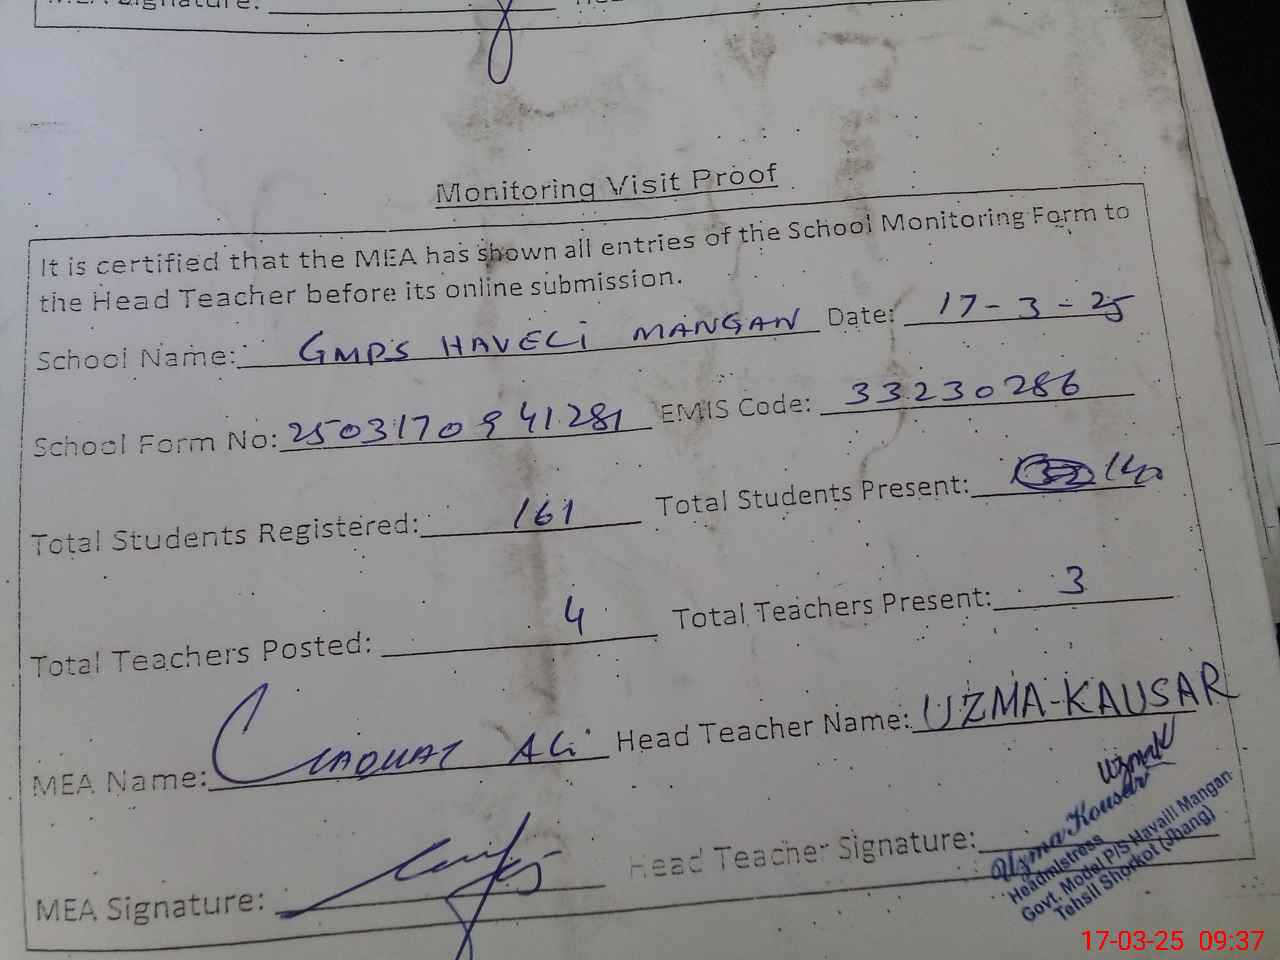 MEA Signature:
Monitoring Visit Proof
It is certified that the MEA has shown all entries of the School Monitoring Form to
the Head Teacher before its online submission.
School Name: GMPS HAVELI MANGAN Date: 17-3-25
School Form No: 2503170941281 EMIS Code: 33230286
Total Students Registered: 161 Total Students Present: 140
Total Teachers Posted: 4 Total Teachers Present: 3
MEA Name: LIAQUAT ALi Head Teacher Name: UZMA-KAUSAR
MEA Signature: Head Teacher Signature:
UzmaK
Uzma Kousar
Headmistress
Govt. Model P/S Havaili Mangan
Tehsil Shorkot (Jhang)
17-03-25 09:37